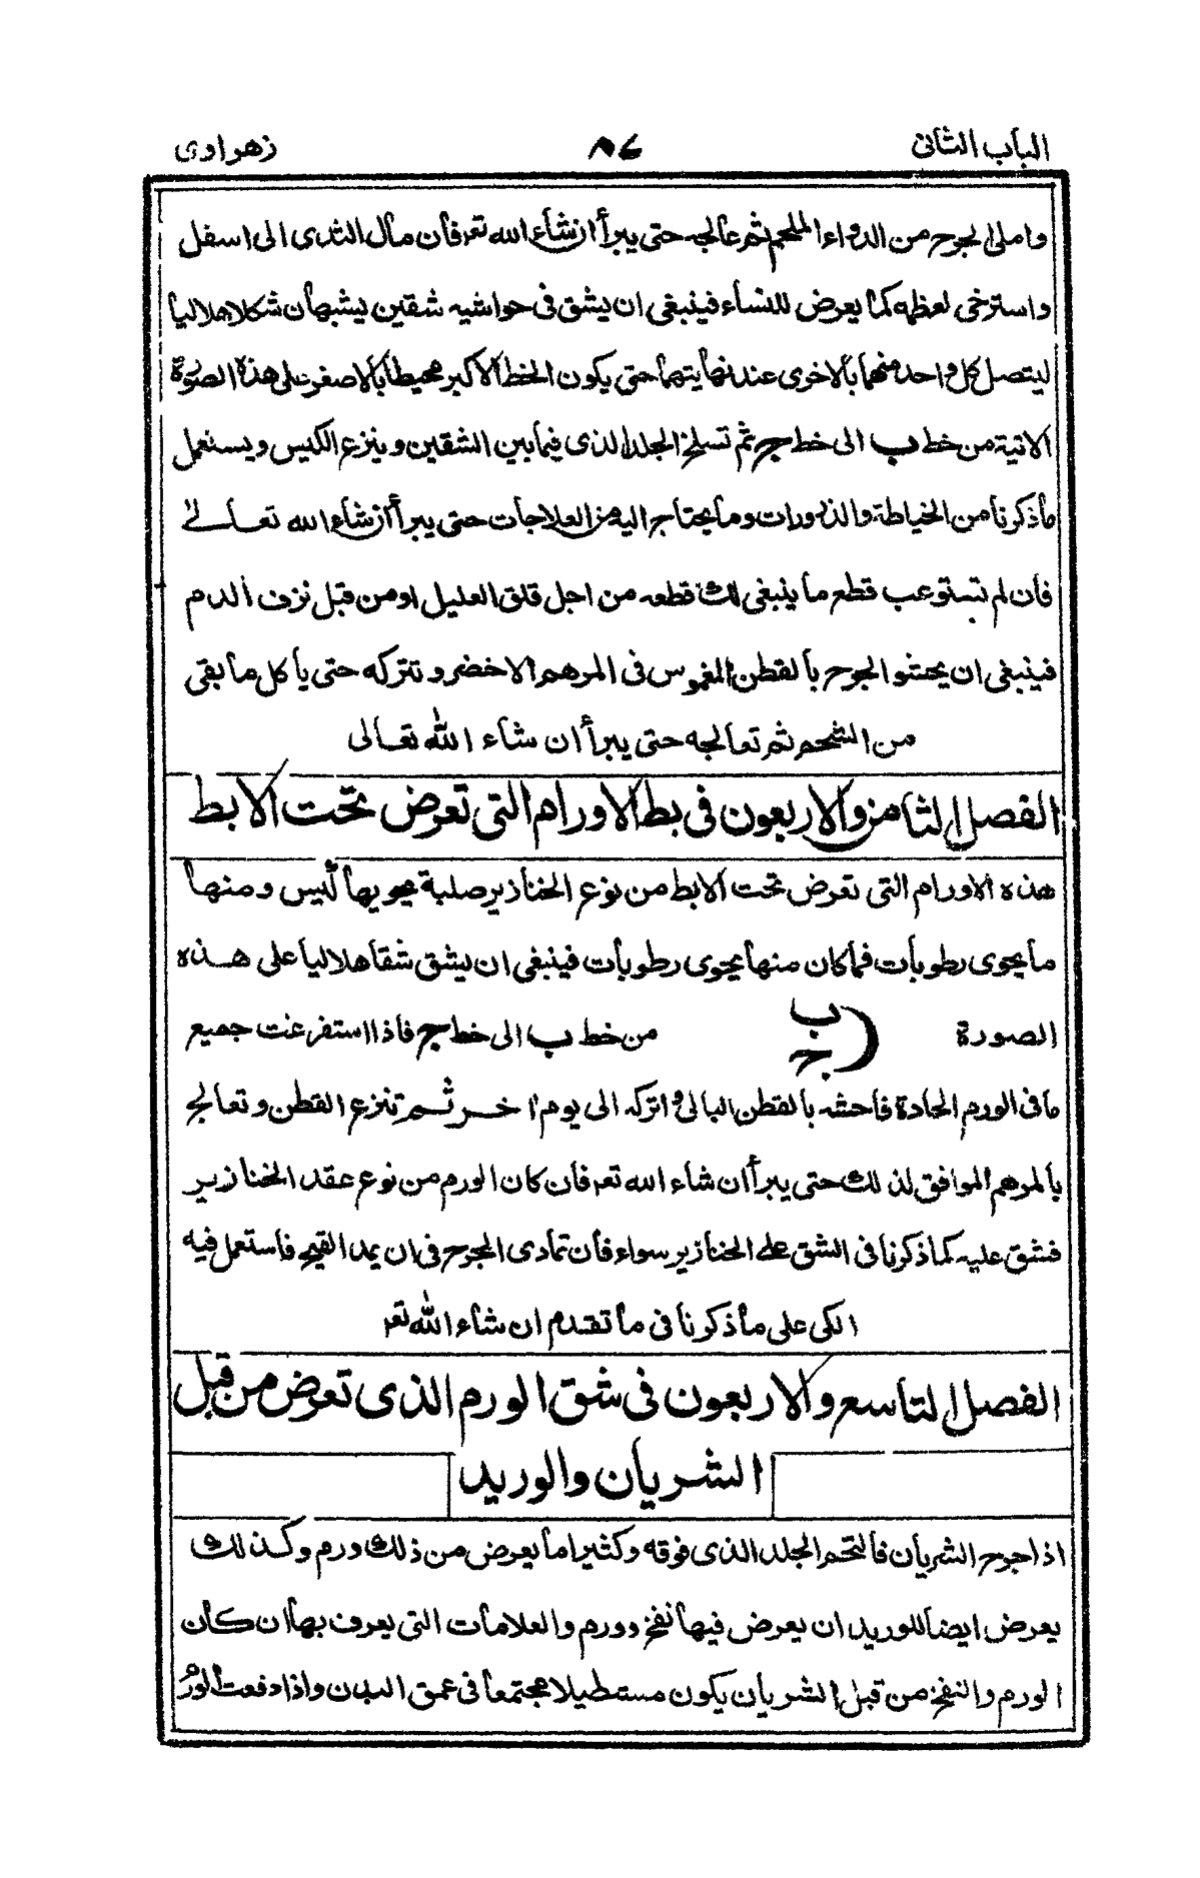 الباب الثاني ٨٤ زهراوى
واملئ الجرح من الدواء الملحم ثم عالجه حتى يبرأ ان شاء الله تعـ فان مال الثدى الى اسفل
واسترخى لعظمه كما يعرض للنساء فينبغى ان يشق فى حواشيه شقين يشبهان شكلا هلاليا
ليتصل كل واحد منهما بالاخرى عند نهايتهما حتى يكون الخط الاكبر محيطا بالاصغر على هذه الصورة
الاتية من خط ب الى خط ج ثم تسلخ الجلد الذى فيما بين الشقين وينزع الكيس ويستعمل
ما ذكرنا من الخياطة والذرورات وما يحتاج اليه من العلاجات حتى يبرأ ان شاء الله تعالى
فان لم تستوعب قطع ما ينبغى لك قطعه من اجل قلق العليل او من قبل نزف الدم
فينبغى ان يحشو الجرح بالقطن المغموس فى المرهم الاخضر وتتركه حتى ياكل ما بقى
من الشحم ثم تعالجه حتى يبرأ ان شاء الله تعالى
الفصل الثامن والاربعون فى بط الاورام التى تعرض تحت الابط
هذه الاورام التى تعرض تحت الابط من نوع الخنازير صلبة يحويها كيس ومنها
ما يحوى رطوبات فما كان منها يحوى رطوبات فينبغى ان يشق شقا هلاليا على هذه
الصورة ب ج من خط ب الى خط ج فاذا استفرغت جميع
ما فى الورم الحادة فاحشه بالقطن البالى واتركه الى يوم اخر ثم تنزع القطن وتعالج
بالمرهم الموافق لذلك حتى يبرأ ان شاء الله تعـ فان كان الورم من نوع عقد الخنازير
فشق عليه كما ذكرنا فى الشق على الخنازير سواء فان تمادى الجرح فى ان يمد القيح فاستعمل فيه
الكى على ما ذكرنا فى ما تقدم ان شاء الله تعـ
الفصل التاسع والاربعون فى شق الورم الذى تعرض من قبل
الشريان والوريد
اذا جرح الشريان فالتحم الجلد الذى فوقه وكثيرا ما يعرض من ذلك ورم وكذلك
يعرض ايضا للوريد ان يعرض فيها نفخ وورم والعلامات التى يعرف بها ان كان
الورم والنفخ من قبل الشريان يكون مستطيلا مجتمعا فى عمق البدن واذا دفعت الورم